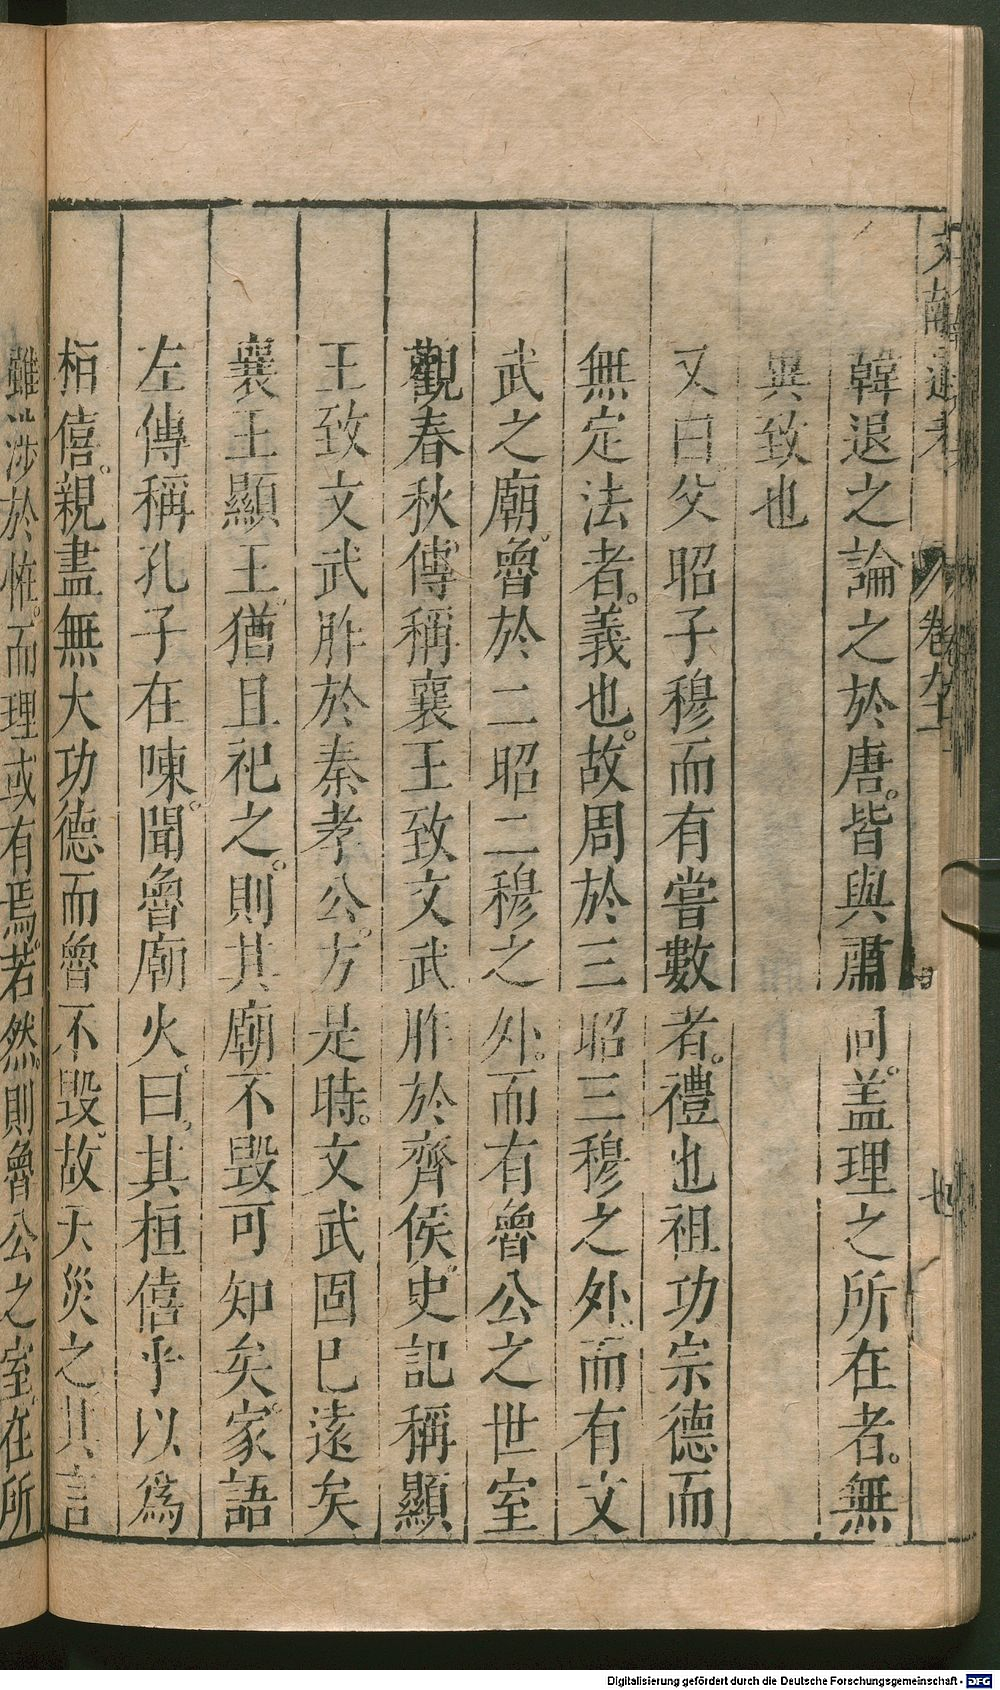 韓退之論之於唐。皆與肅同。盖理之所在者。無
異致也
又曰父昭子穆而有嘗數者。禮也祖功宗德而
無定法者。義也。故周於三昭三穆之外。而有文
武之廟。魯於二昭二穆之外。而有魯公之世室
觀春秋。傳稱襄王致文武胙於齊侯。史記稱顯
王致文武胙於秦孝公。方是時。文武固已遠矣
襄王顯王。猶且祀之。則其廟不毀可知矣。家語
左傳稱孔子在陳。聞魯廟火。曰。其桓僖乎以爲
桓僖。親盡無大功德而魯不毀。故天災之其言
雖涉於恠。而理或有焉。若然。則魯公之室。在所
卷九十一
Digitalisierung gefördert durch die Deutsche Forschungsgemeinschaft - DFG